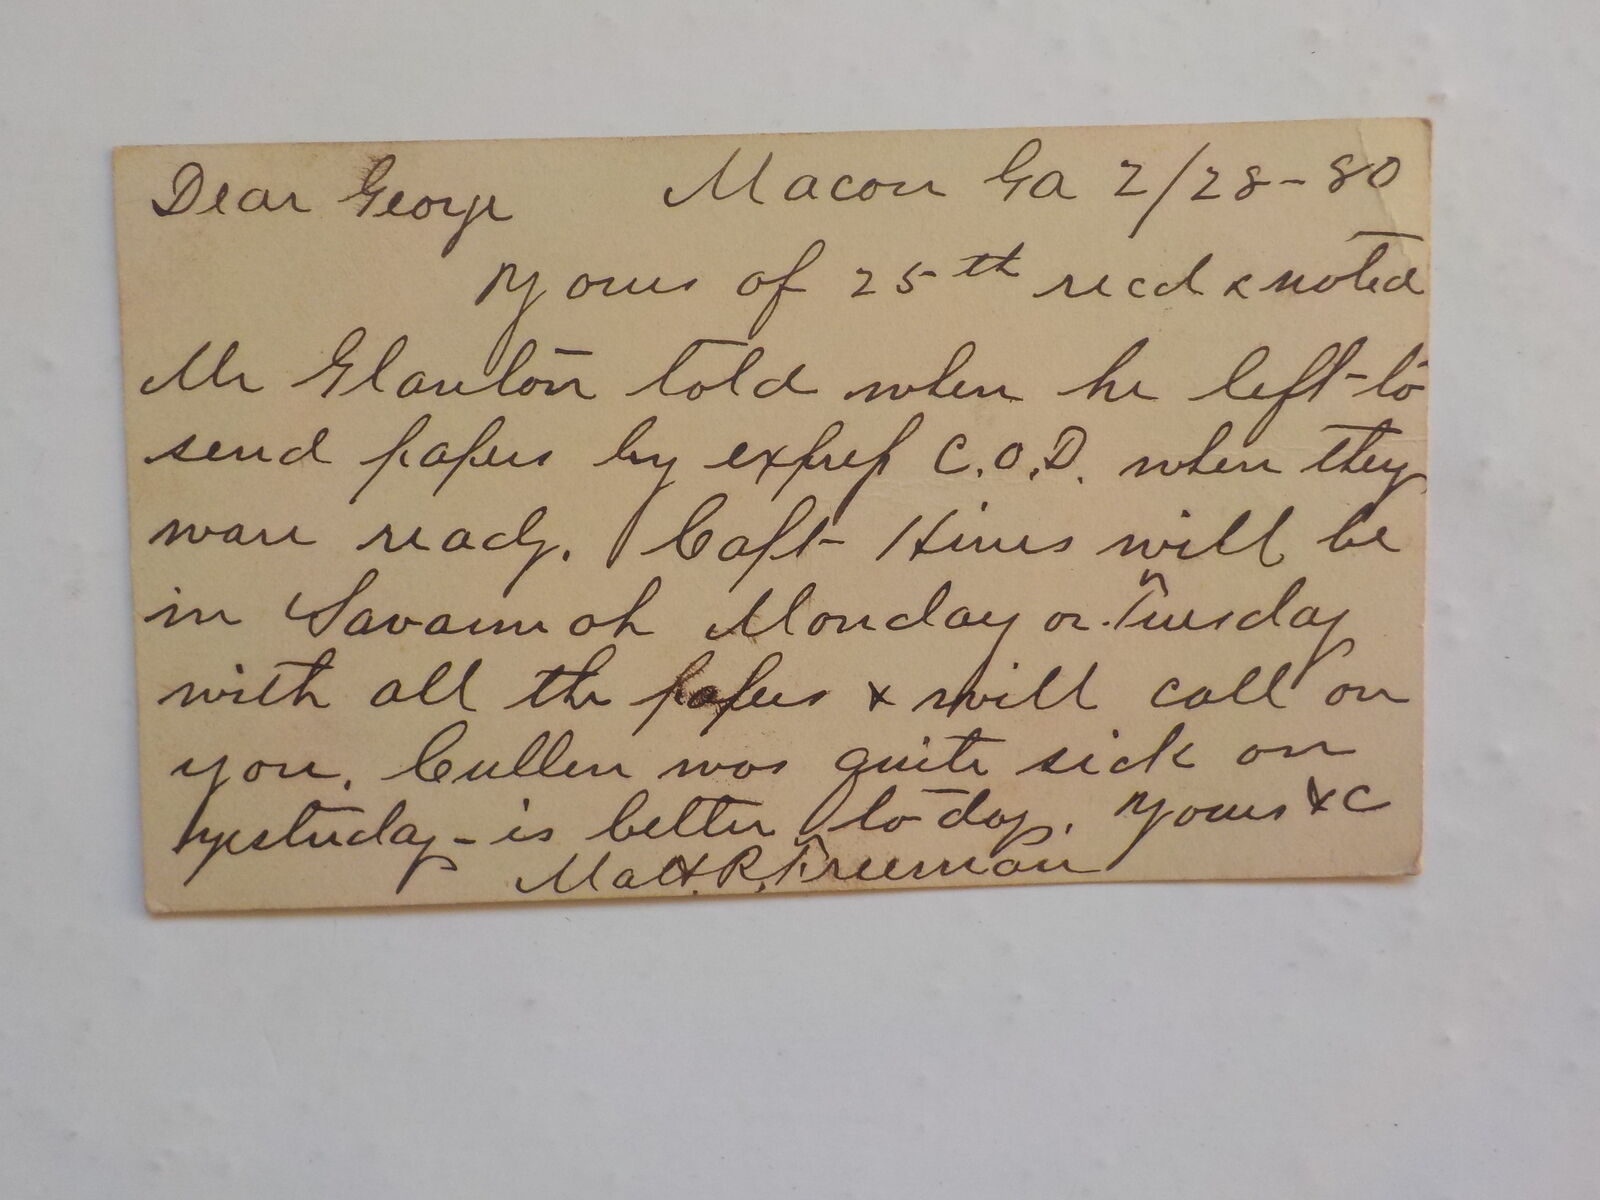 Dear George Macon Ga 2/28-80
Yours of 25th recd & noted
Mr Glanton told when he left to
send papers by express C.O.D. when they
ware ready. Capt Hines will be
in Savannah Monday or Tuesday
with all the papers & will call on
you. Cullen was quite sick on
yesterday - is better to-day. Yours &c
Matt. R. Freeman